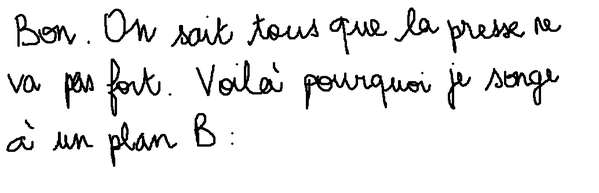 Bon. On sait tous que la presse ne
va pas fort. Voilà pourquoi je songe
à un plan B :